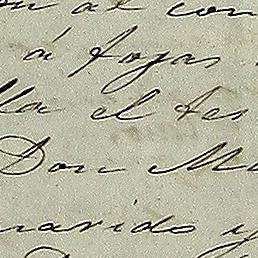 on al con
á fojas
lla el tes
Don Ma
marido y